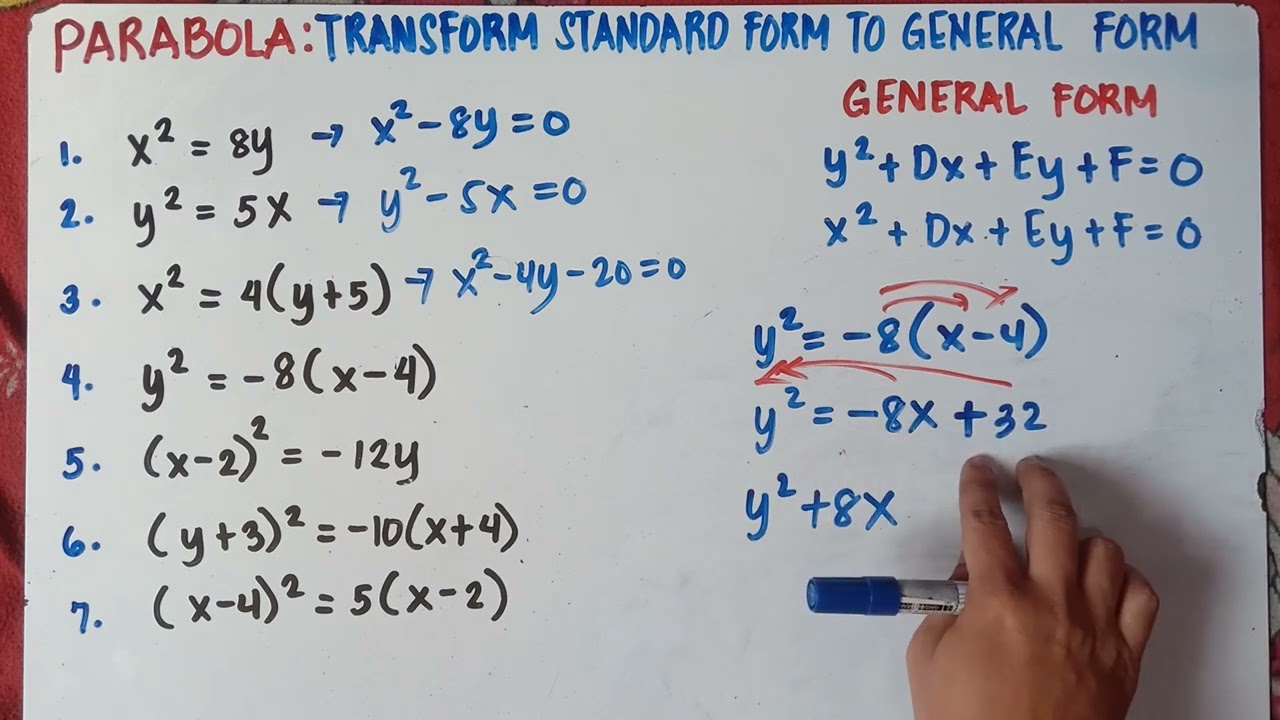 PARABOLA: TRANSFORM STANDARD FORM TO GENERAL FORM
1. x² = 8y → x² - 8y = 0
2. y² = 5x → y² - 5x = 0
3. x² = 4(y+5) → x² - 4y - 20 = 0
4. y² = -8(x-4)
5. (x-2)² = -12y
6. (y+3)² = -10(x+4)
7. (x-4)² = 5(x-2)
GENERAL FORM
y² + Dx + Ey + F = 0
x² + Dx + Ey + F = 0
y² = -8(x-4)
y² = -8x + 32
y² + 8x